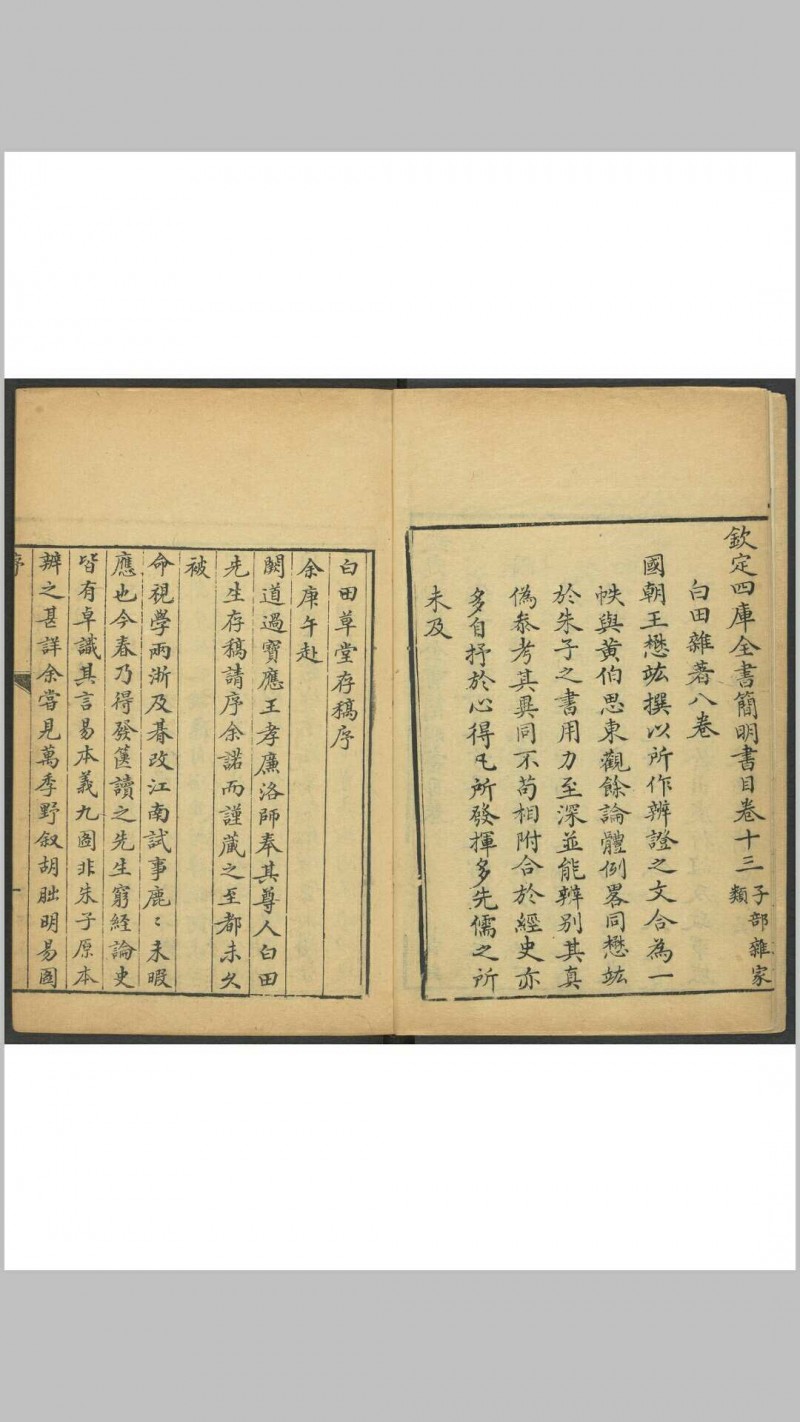 欽定四庫全書簡明書目卷十三子部雜家類
白田雜著八卷
國朝王懋竑撰以所作辨證之文合為一
帙與黃伯思東觀餘論體例畧同懋竑
於朱子之書用力至深並能辨别其真
偽叅考其異同不苟相附合於經史亦
多自抒於心得凡所發揮多先儒之所
未及
白田草堂存稿序
余庚午赴
闕道過寶應王孝廉洛師奉其尊人白田
先生存稿請序余諾而謹藏之至都未久
被
命視學兩浙及暮改江南試事鹿〻未暇
應也今春乃得發篋讀之先生窮經論史
皆有卓識其言易本義九圖非朱子原本
辨之甚詳余嘗見萬季野叙胡朏明易圖
序
一